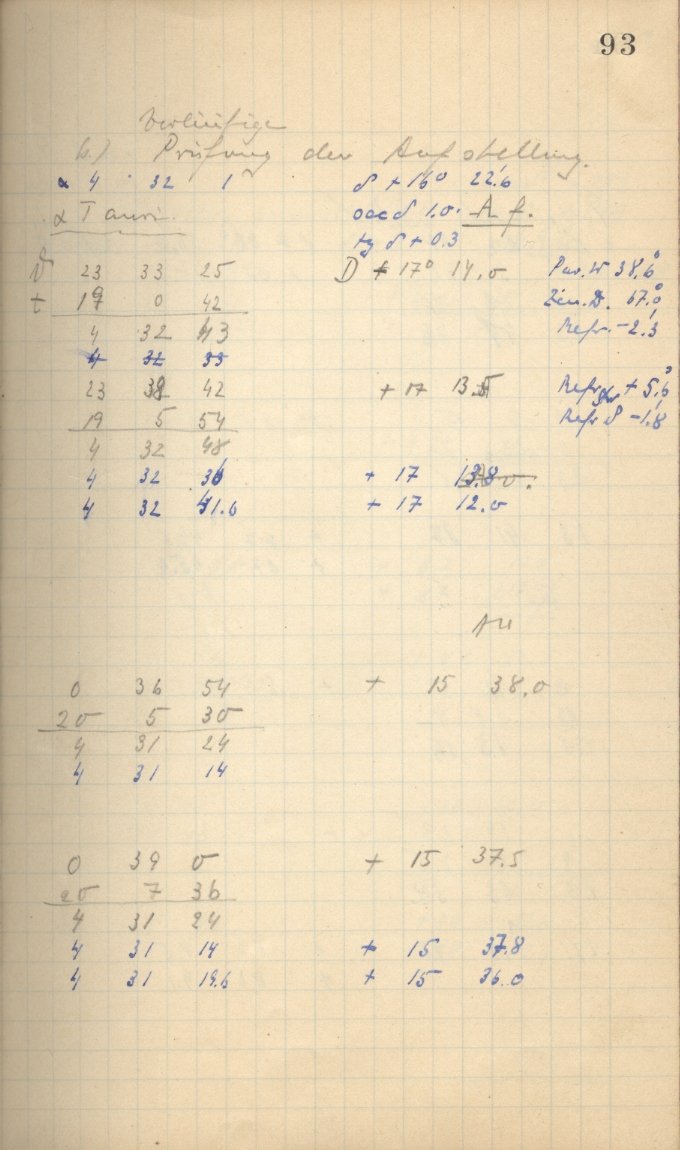 93
Vorläufige
b.) Prüfung der Aufstellung.
α 4 32 1 δ + 16° 22.6
α Tauri. sec δ 1.0. A f.
tg δ + 0.3
23 33 25 D + 17° 14.0 Par. W 38.6°
t 19 0 42 Zen. D. 67.0°
4 32 43 Refr. -2.3
4 32 33
23 38 42 + 17 13.5 Refr α + 5.6
19 5 54 Refr δ -1.8
4 32 48
4 32 36 + 17 13.8
4 32 41.6 + 17 12.0
0 36 54 + 15 38.0
20 5 30
4 31 24
4 31 14
0 39 0 + 15 37.5
20 7 36
4 31 24
4 31 14 + 15 37.8
4 31 19.6 + 15 36.0